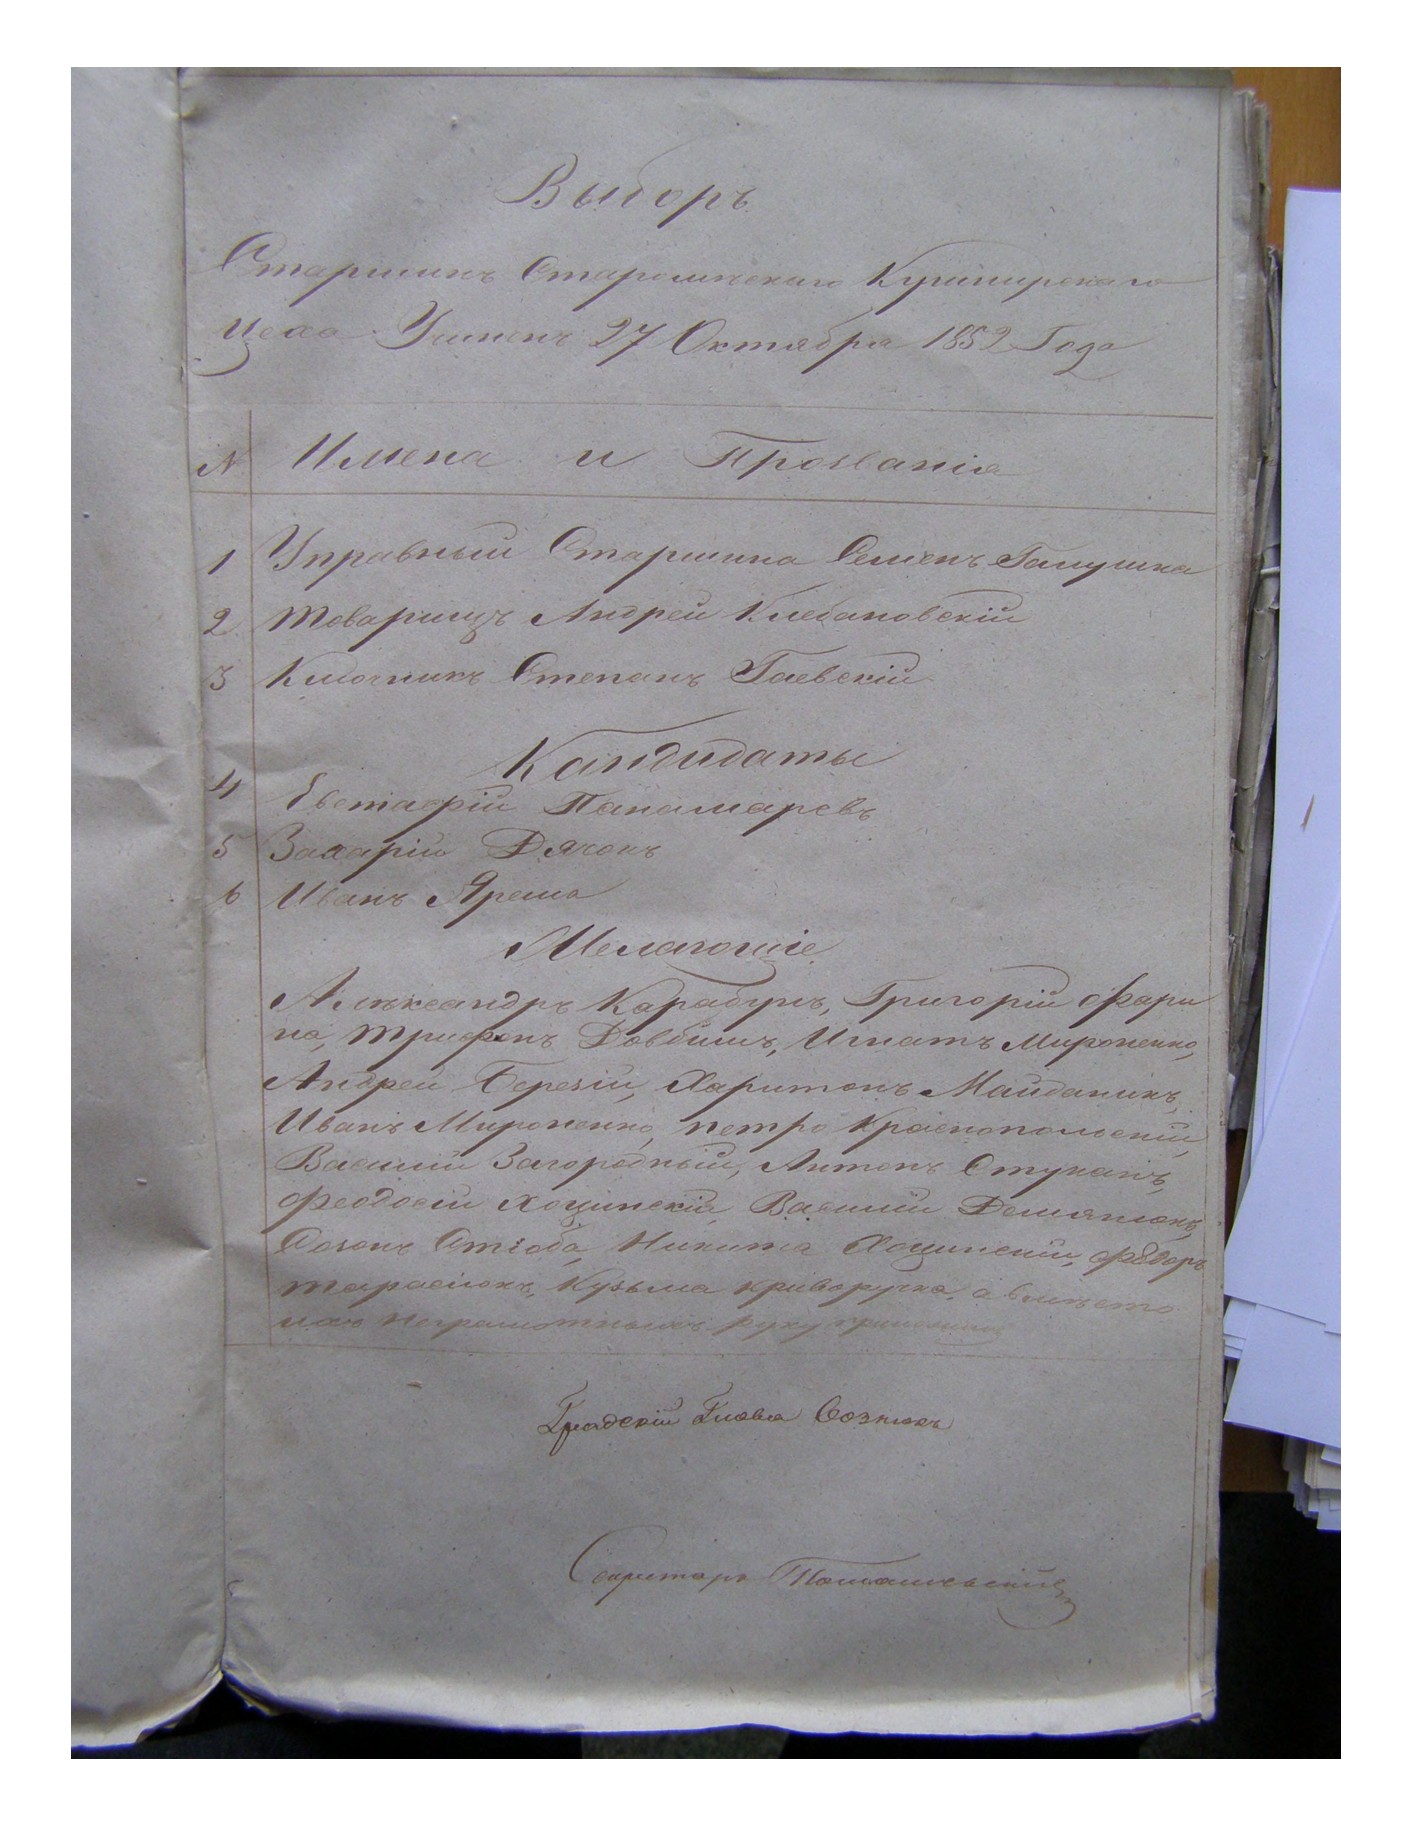 Выборъ
Старшинъ Кушнирскаго
Цеха Учинен 27 Октября 1852 Года
№ Имена и Прозванія
1 Управный Старшина Семенъ Галушка
2 Товарищъ Андрей Клебановскій
3 Ключникъ Степанъ Гаевскій
Кандидаты
4 Евстафій Панамаревъ
5 Захарій Дячокъ
6 Иванъ Яреша
Желающіе
Алѣксандръ Карабунъ, Григорій Фари
на, Трифонъ Довбишъ, Игнатъ Мироненко,
Андрей Березій, Харитонъ Майданикъ,
Иванъ Мироненко, петро Краснопольскій,
Василій Загородный, Антонъ Стукані,
Феодосій Хоцинскій, Василій Демянюкъ,
Созонъ Никита Хоцинскій, Федоръ
Тарасюкъ, Кузьма криворучка, а вмѣсто
ихъ неграмотныхъ руку приложилъ
Градскій Глава Сознюкъ
Секритарь